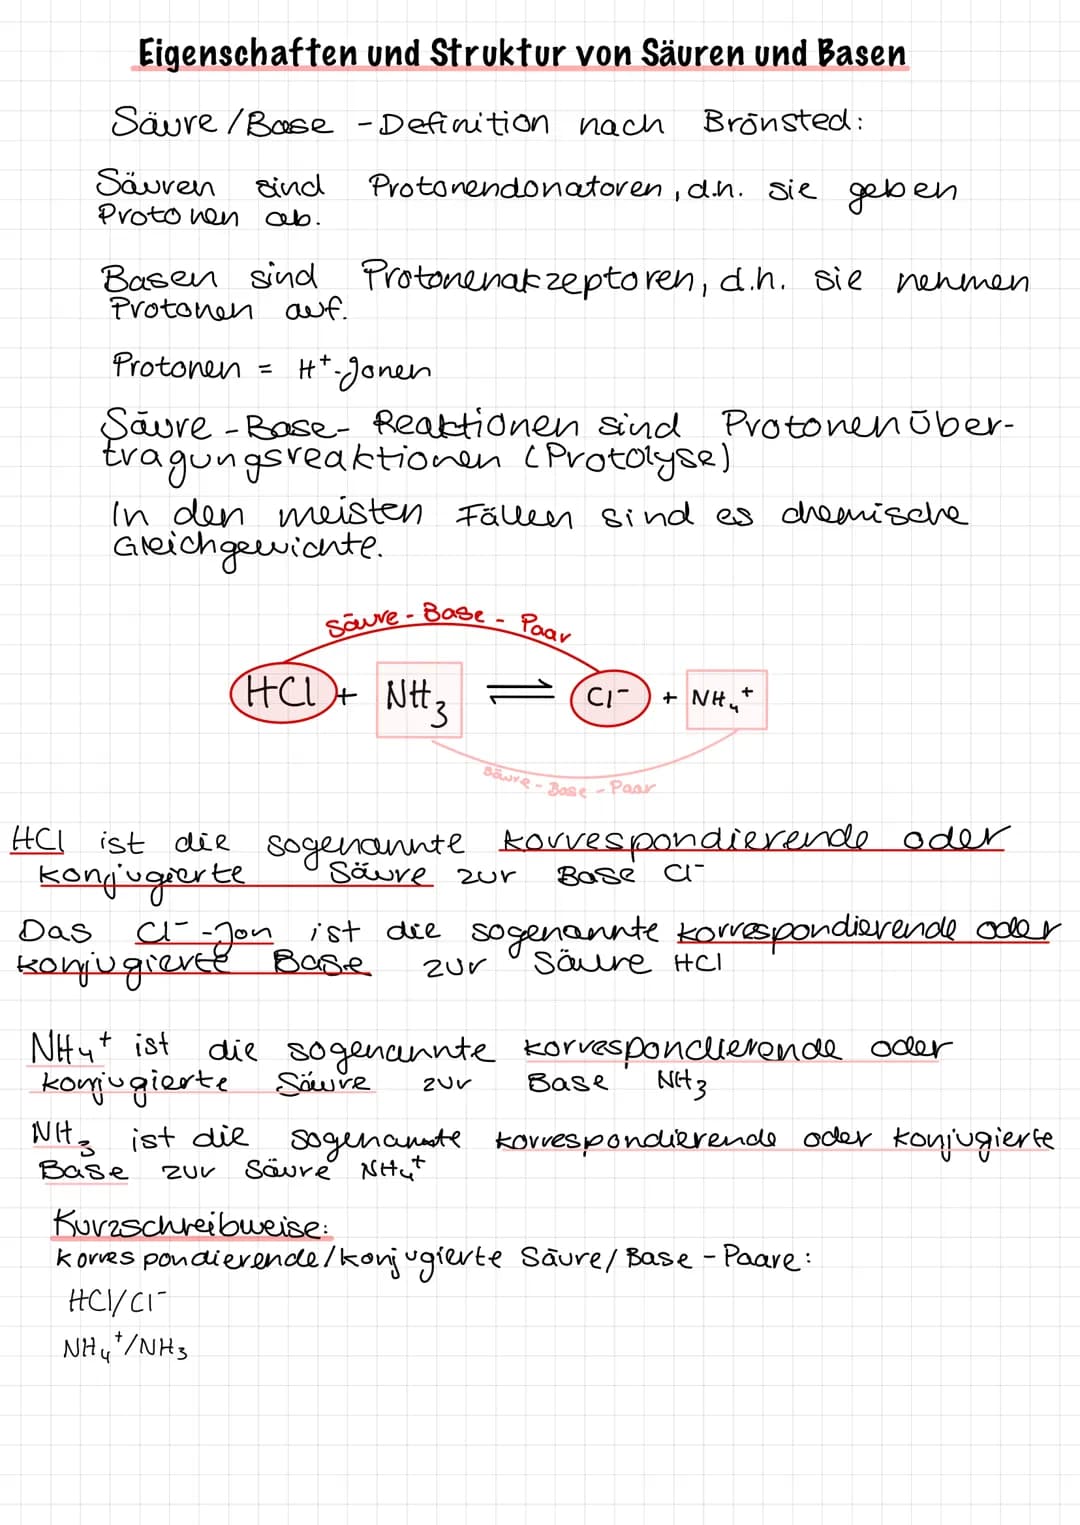 Eigenschaften und Struktur von Säuren und Basen
Säure/Base -Definition nach Brönsted:
Säuren sind Protonendonatoren, d.h. sie geben
Protonen ab.
Basen sind Protonenakzeptoren, d.h. sie nehmen
Protonen auf.
Protonen = H⁺-Jonen
Säure-Base-Reaktionen sind Protonenüber-
tragungsreaktionen (Protolyse)
In den meisten Fällen sind es chemische
Gleichgewichte.
Säure-Base-Paar
HCl + NH₃ ⇌ Cl⁻ + NH₄⁺
Säure-Base-Paar
HCl ist die sogenannte korrespondierende oder
konjugierte Säure zur Base Cl⁻
Das Cl⁻-Jon ist die sogenannte korrespondierende oder
konjugierte Base zur Säure HCl
NH₄⁺ ist die sogenannte korrespondierende oder
konjugierte Säure zur Base NH₃
NH₃ ist die sogenannte korrespondierende oder konjugierte
Base zur Säure NH₄⁺
Kurzschreibweise:
korrespondierende/konjugierte Säure/Base-Paare:
HCl/Cl⁻
NH₄⁺/NH₃